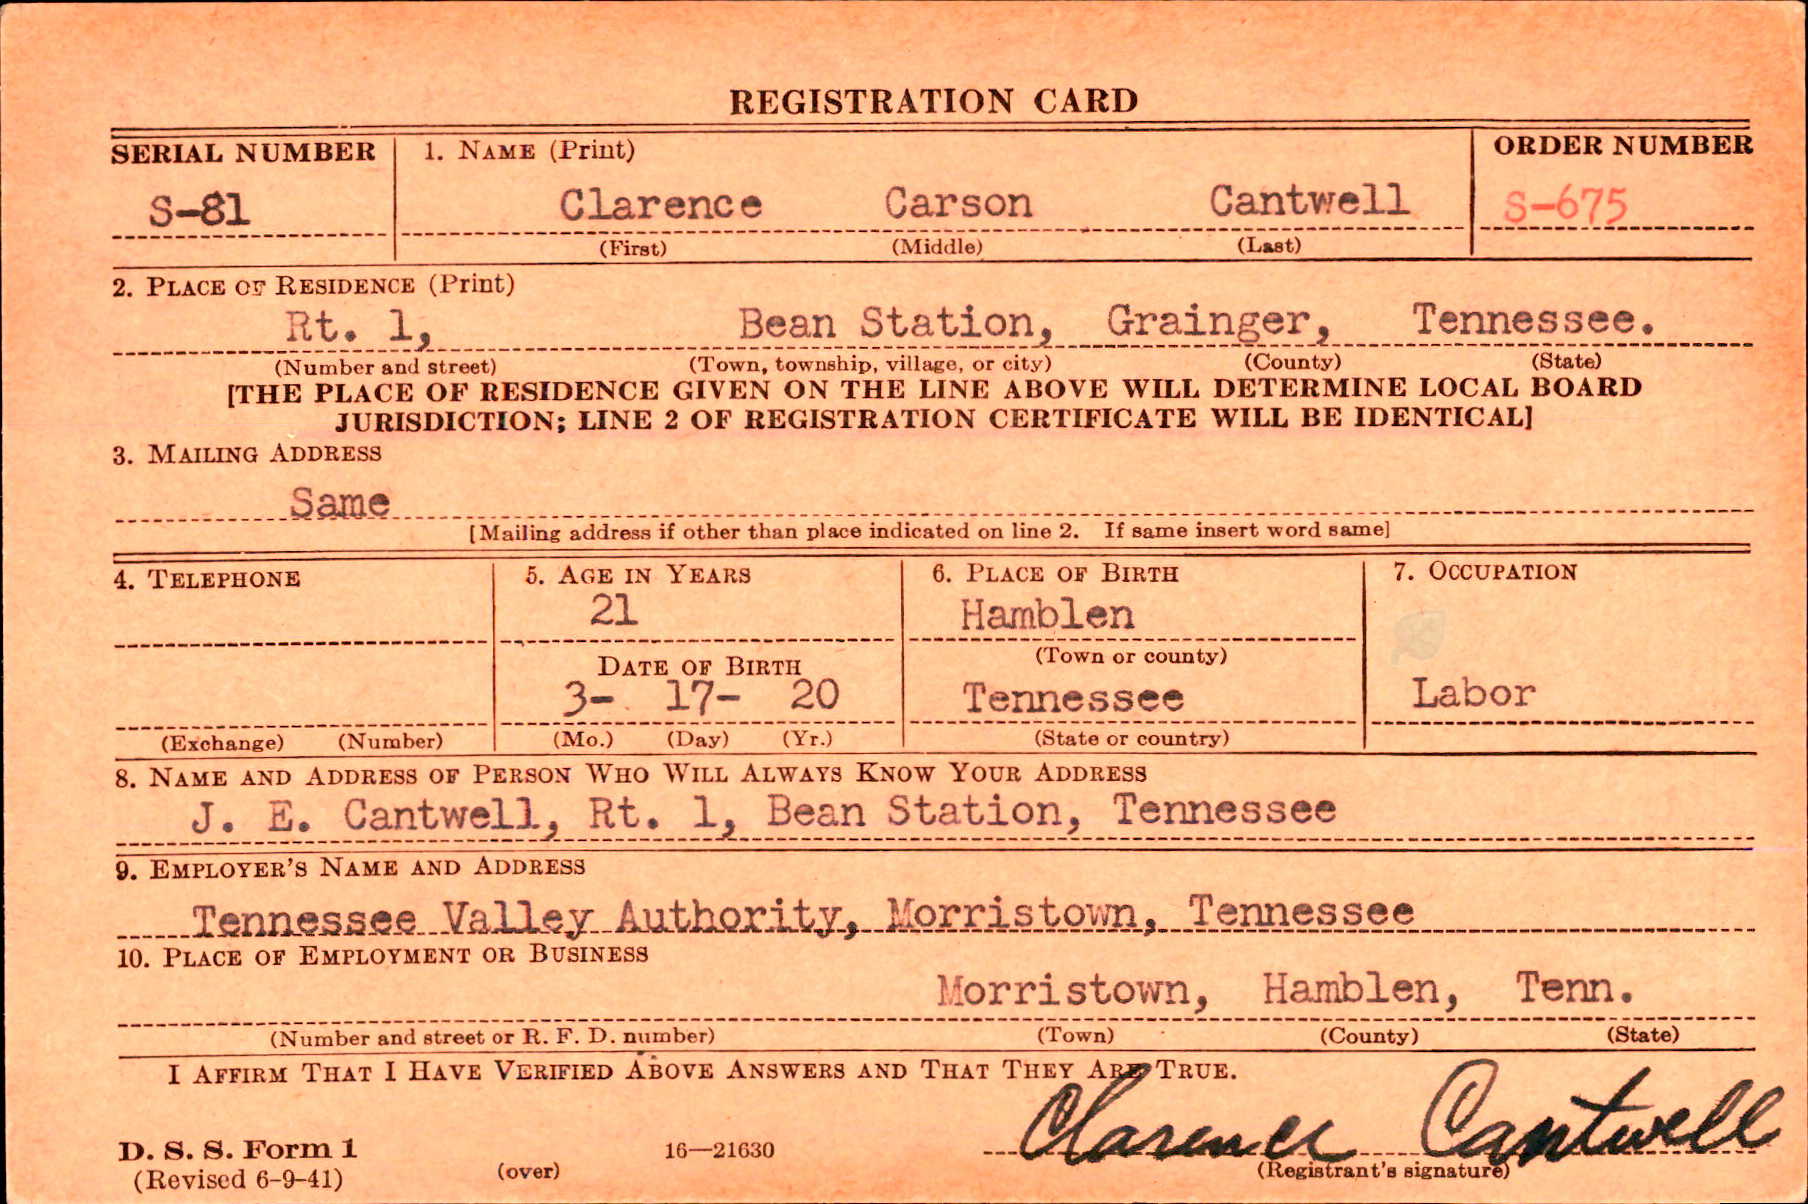 REGISTRATION CARD
SERIAL NUMBER 1. NAME (Print) ORDER NUMBER
S-81 Clarence Carson Cantwell S-675
(First) (Middle) (Last)
2. PLACE OF RESIDENCE (Print)
Rt. 1, Bean Station, Grainger, Tennessee.
(Number and street) (Town, township, village, or city) (County) (State)
[THE PLACE OF RESIDENCE GIVEN ON THE LINE ABOVE WILL DETERMINE LOCAL BOARD
JURISDICTION; LINE 2 OF REGISTRATION CERTIFICATE WILL BE IDENTICAL]
3. MAILING ADDRESS
Same
[Mailing address if other than place indicated on line 2. If same insert word same]
4. TELEPHONE 5. AGE IN YEARS 6. PLACE OF BIRTH 7. OCCUPATION
21 Hamblen
(Town or county)
DATE OF BIRTH
3- 17- 20 Tennessee Labor
(Exchange) (Number) (Mo.) (Day) (Yr.) (State or country)
8. NAME AND ADDRESS OF PERSON WHO WILL ALWAYS KNOW YOUR ADDRESS
J. E. Cantwell, Rt. 1, Bean Station, Tennessee
9. EMPLOYER'S NAME AND ADDRESS
Tennessee Valley Authority, Morristown, Tennessee
10. PLACE OF EMPLOYMENT OR BUSINESS
Morristown, Hamblen, Tenn.
(Number and street or R. F. D. number) (Town) (County) (State)
I AFFIRM THAT I HAVE VERIFIED ABOVE ANSWERS AND THAT THEY ARE TRUE.
Clarence Cantwell
D. S. S. Form 1 16—21630
(Revised 6-9-41) (over) (Registrant's signature)